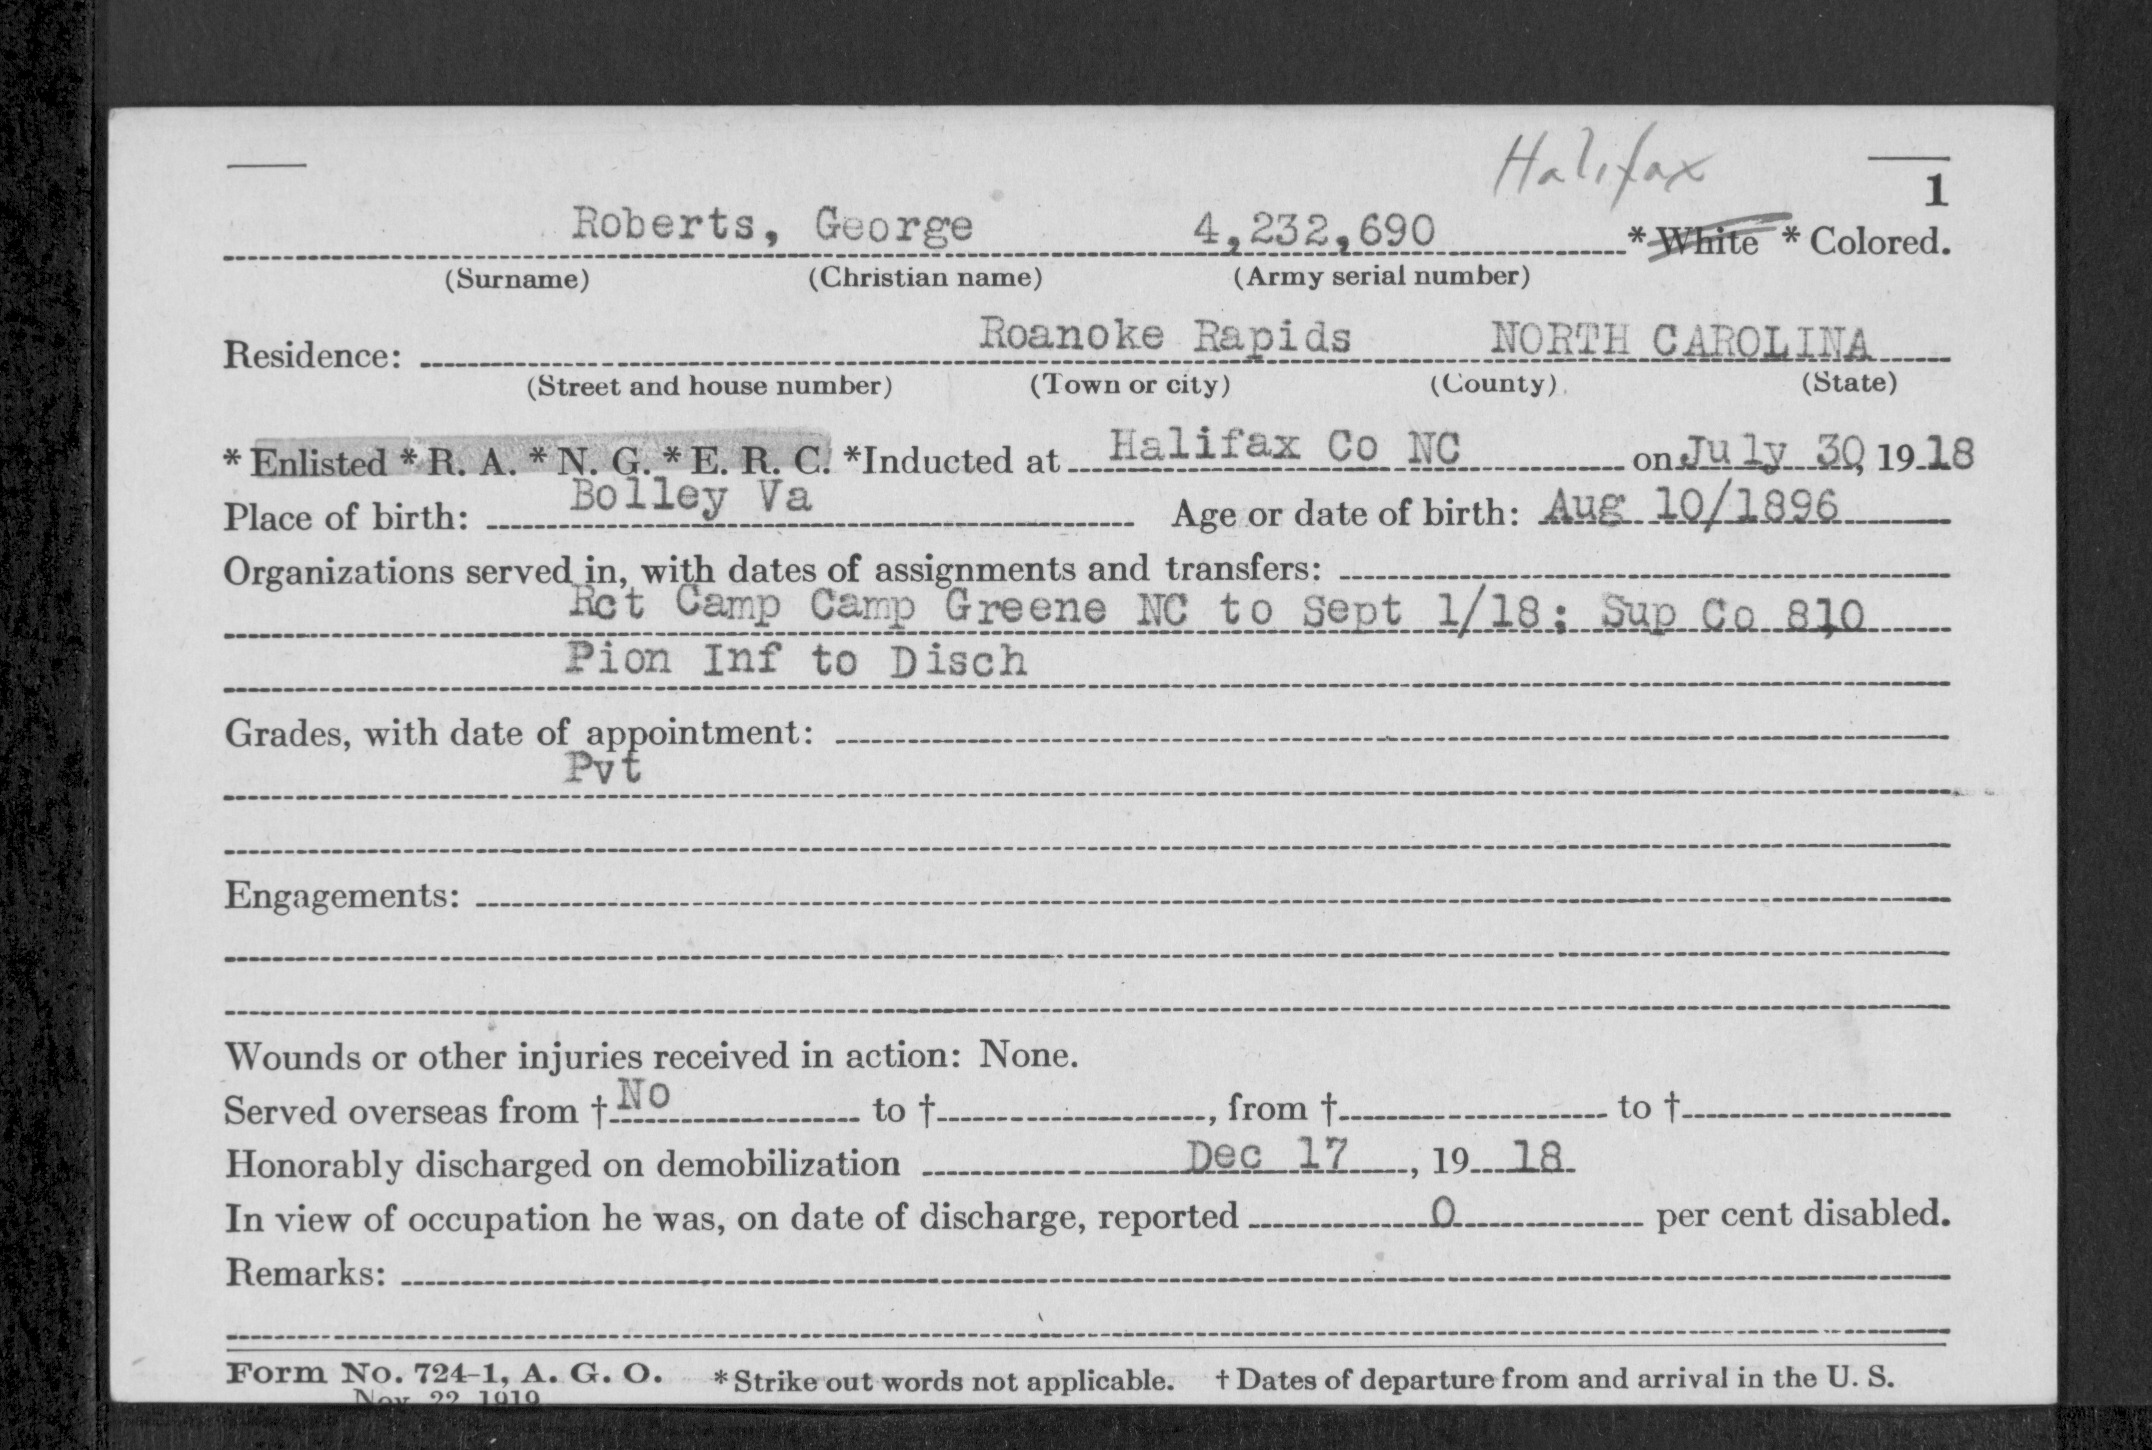 Halifax
1
Roberts, George 4,232,690 * White * Colored.
(Surname) (Christian name) (Army serial number)
Residence: Roanoke Rapids NORTH CAROLINA
(Street and house number) (Town or city) (County) (State)
* Enlisted * R. A. * N. G. * E. R. C. *Inducted at Halifax Co NC on July 30, 1918
Place of birth: Bolley Va Age or date of birth: Aug 10/1896
Organizations served in, with dates of assignments and transfers:
Rct Camp Camp Greene NC to Sept 1/18; Sup Co 810
Pion Inf to Disch
Grades, with date of appointment:
Pvt
Engagements:
Wounds or other injuries received in action: None.
Served overseas from † No to †, from † to †
Honorably discharged on demobilization Dec 17, 19 18
In view of occupation he was, on date of discharge, reported 0 per cent disabled.
Remarks:
Form No. 724-1, A. G. O. * Strike out words not applicable. † Dates of departure from and arrival in the U. S.
Nov. 22, 1919